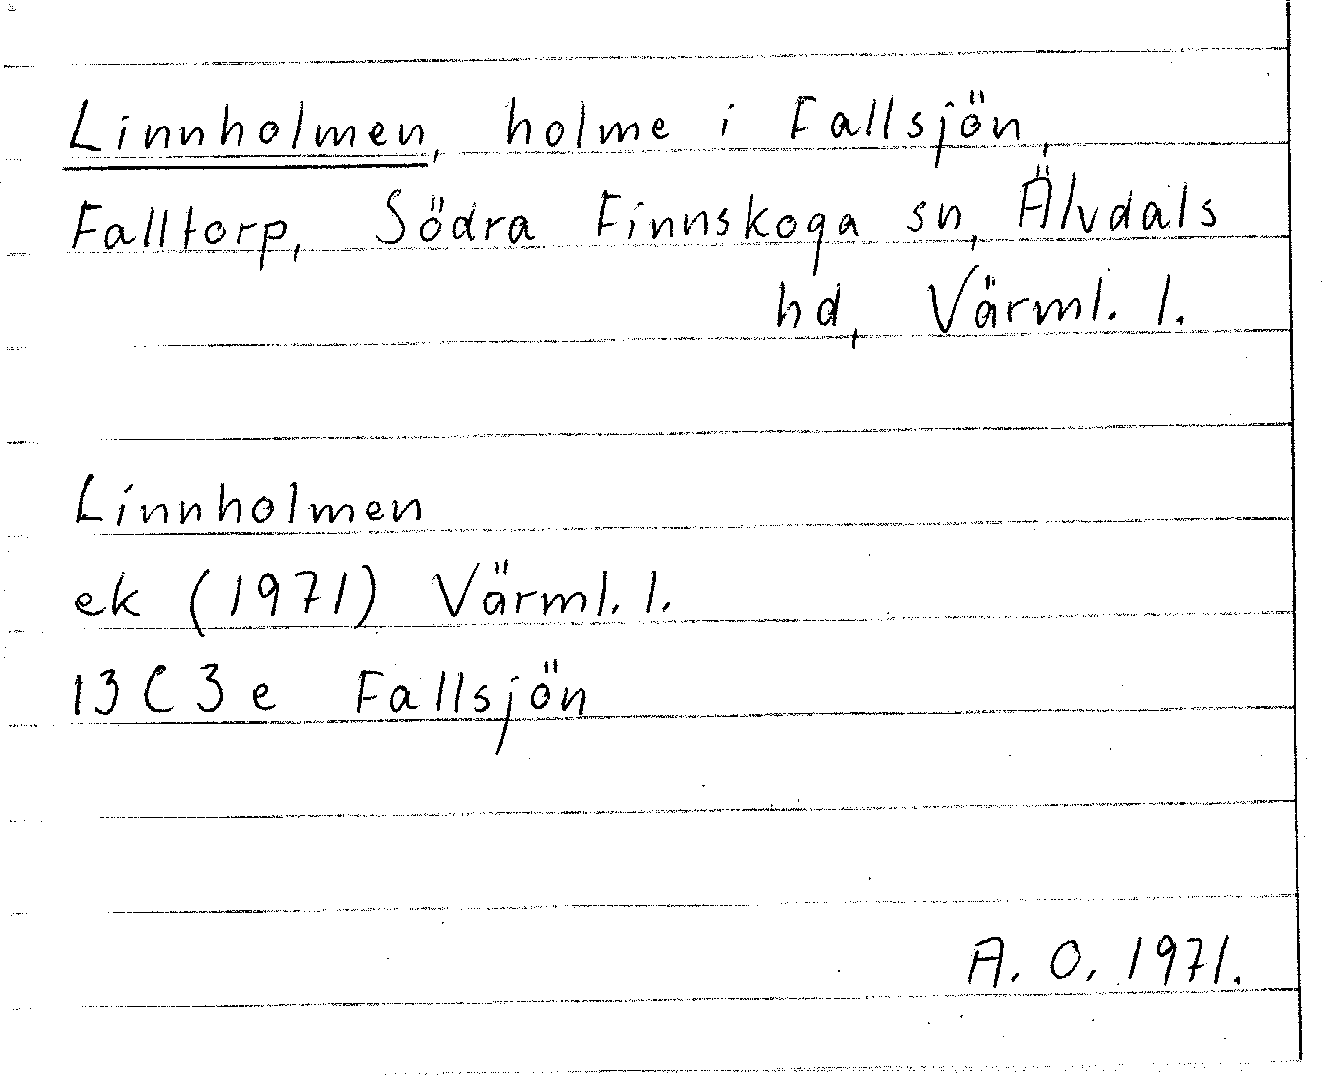 Linnholmen, holme i Fallsjön,
Falltorp, Södra Finnskoga sn, Älvdals
hd, Värml. l.
Linnholmen
ek (1971) Värml. l.
13 C 3 e Fallsjön
A. O. 1971.